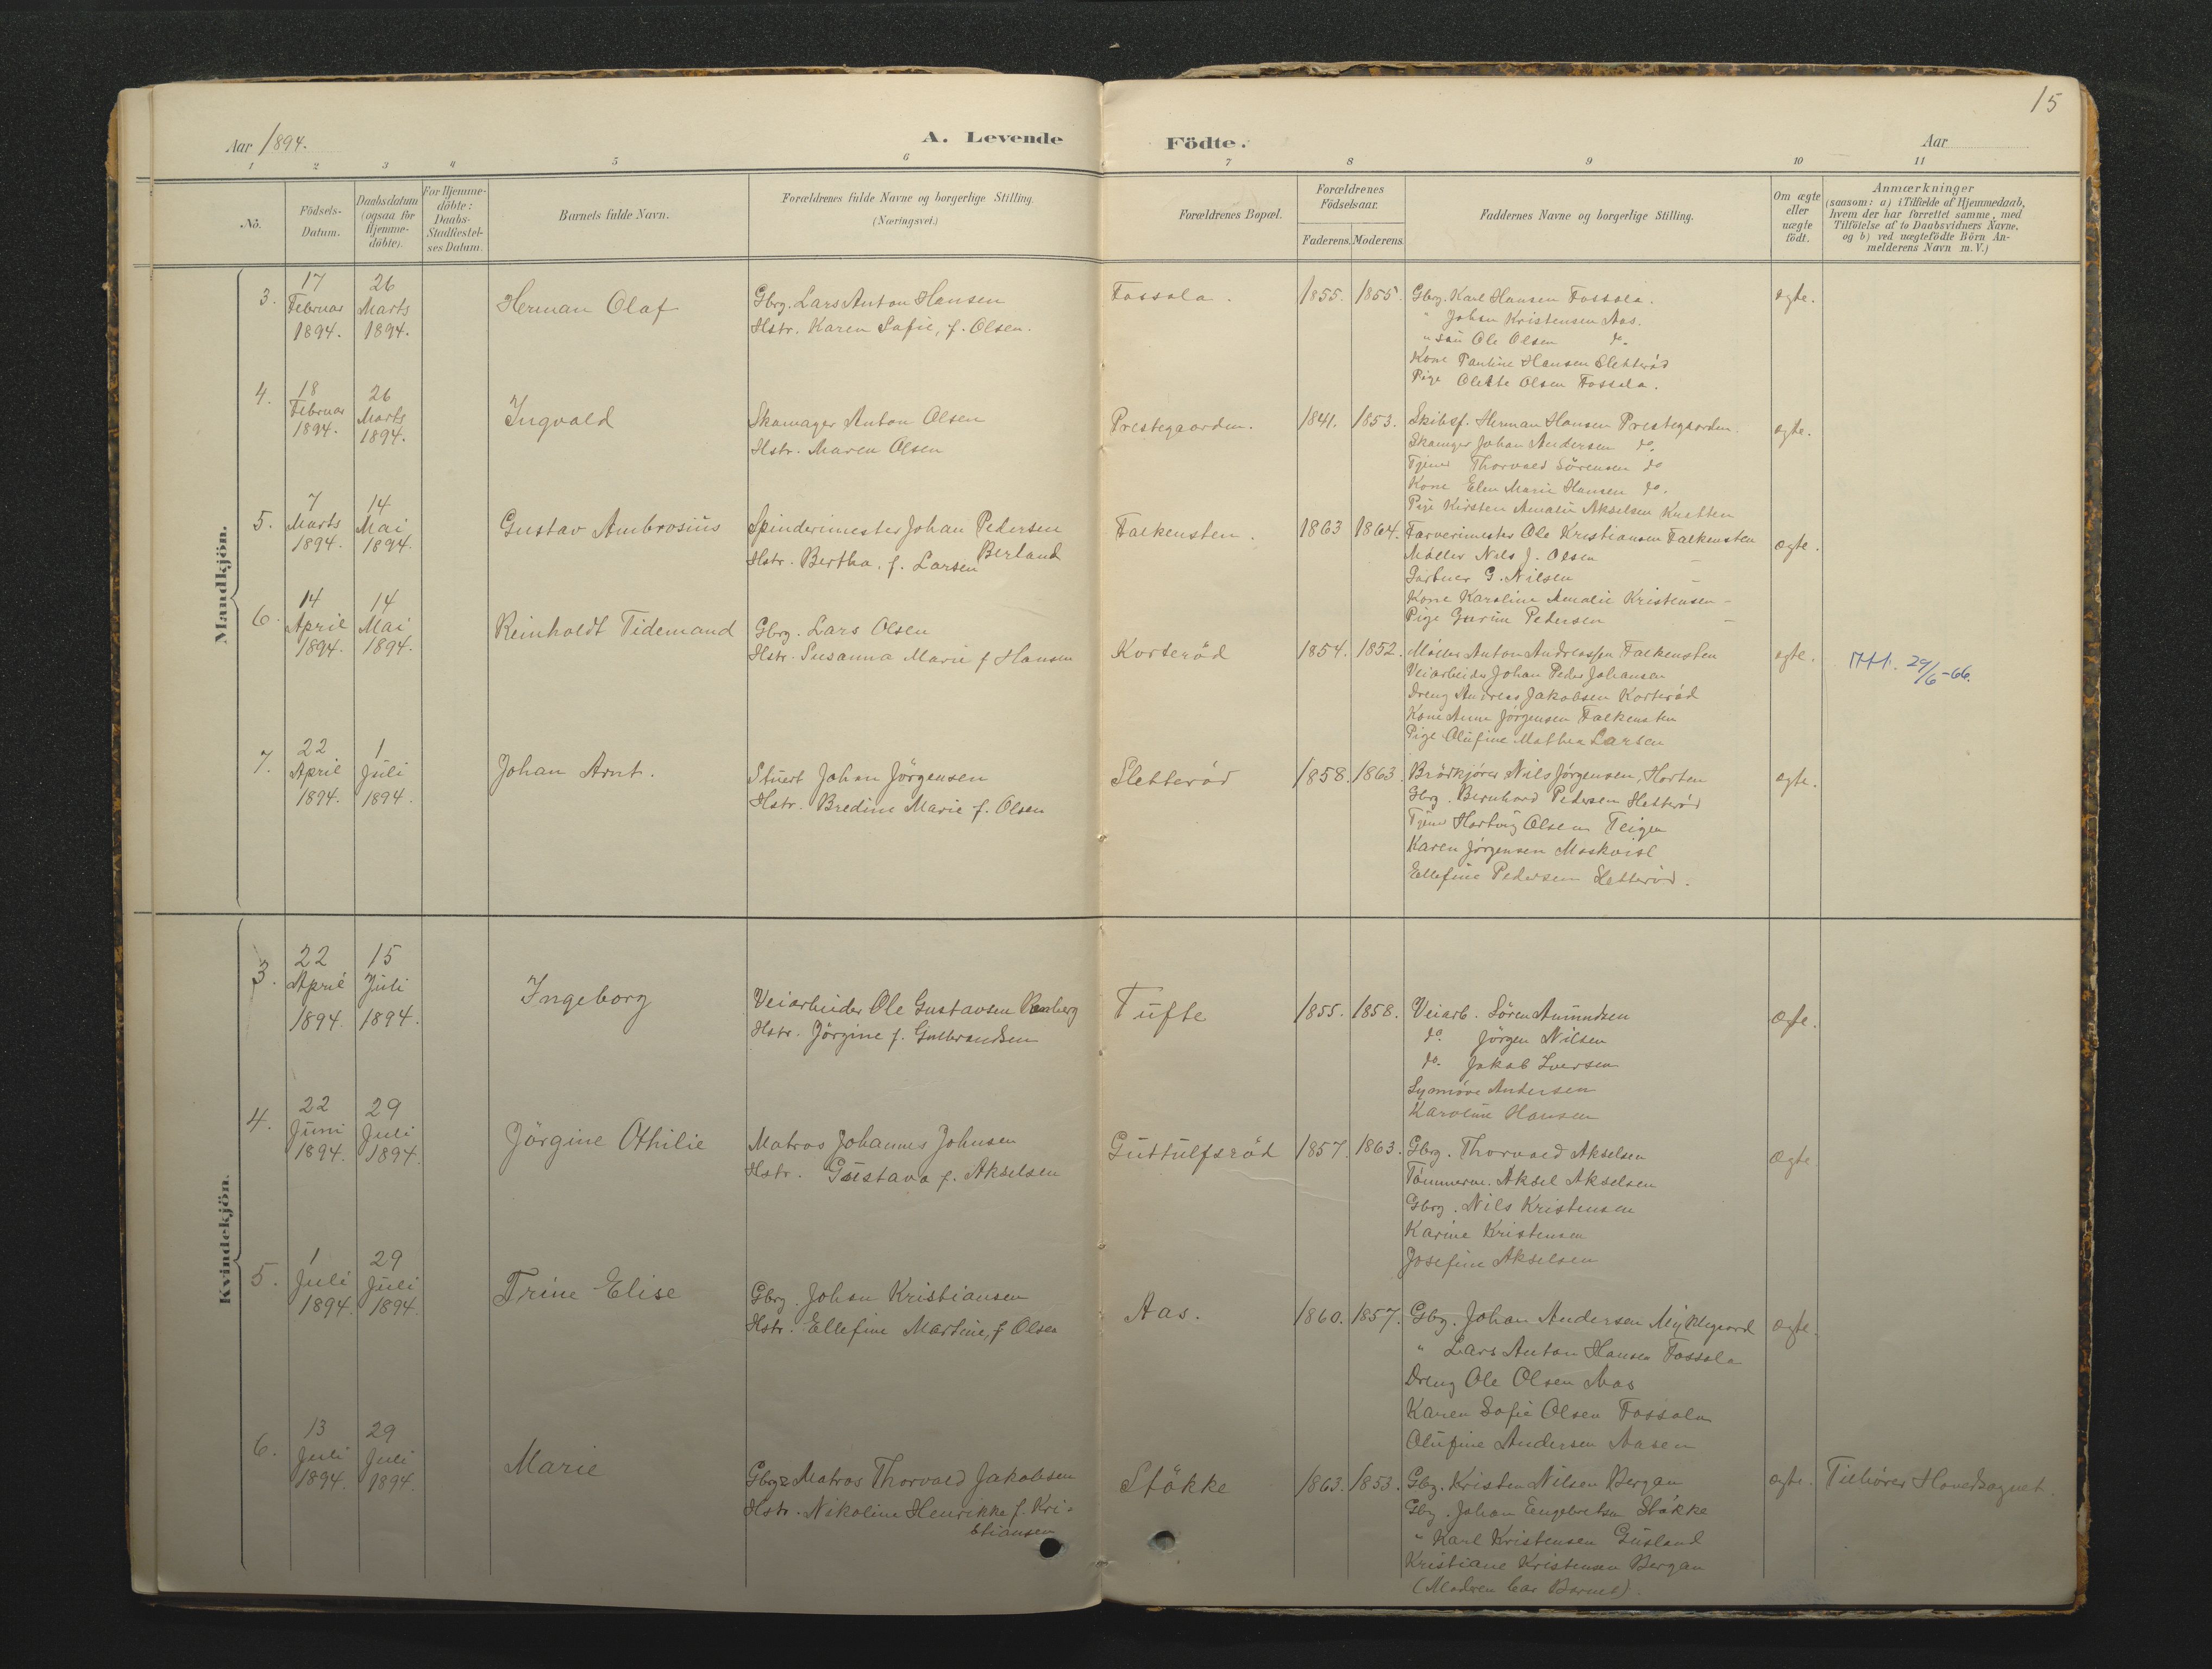 15
Aar 1894.
A. Levende Födte.
Aar
1 2 3 4 5 6 7 8 9 10 11
No.
Födsels-
Datum.
Daabsdatum
(ogsaa for
Hjemme-
döbte).
For Hjemme-
döbte:
Daabs-
Stadfæstel-
ses Datum.
Barnets fulde Navn.
Forældrenes fulde Navne og borgerlige Stilling.
(Næringsvei.)
Forældrenes Bopæl.
Forældrenes
Födselsaar.
Faderens. Moderens.
Faddernes Navne og borgerlige Stilling.
Om ægte
eller
uægte
födt.
Anmærkninger
(saasom: a) i Tilfælde af Hjemmedaab,
hvem der har forrettet samme, med
Tilföielse af to Daabsvidners Navne,
og b) ved uægtefödte Börn An-
melderens Navn m. V.)
Mandkjön.
3.
17
Februar
1894.
26
Marts
1894.
Herman Olaf
Gbrg. Lars Anton Hansen
Hstr. Karen Sofie, f. Olsen.
Fossola.
1855. 1855.
Gbrg. Karl Hansen Fossola.
" Johan Kristensen Aas.
" Sön Ole Olsen do.
Kone Pauline Hansen Sletteröd
Pige Olette Olsen Fossola.
ægte.
4.
18
Februar
1894.
26
Marts
1894.
Ingvald
Skomager Anton Olsen
Hstr. Maren Olsen
Prestegaarden.
1841. 1853.
Skibsf. Herman Hansen Prestegaarden.
Skomager Johan Andersen do.
Tjener Thorvald Sörensen do
Kone Elen Marie Hansen do.
Pige Kirsten Amalie Akselsen Knatten
ægte.
5.
7
Marts
1894.
14
Mai
1894.
Gustav Ambrosius
Spinderimester Johan Pedersen
Berland
Hstr. Bertha, f. Larsen
Falkensten.
1863 1864.
Farverimester Ole Kristiansen Falkensten
Möller Nils J. Olsen -
Gartner G. Nilsen -
Kone Karoline Amalie Kristensen -
Pige Gurine Pedersen -
ægte.
6.
14
April
1894.
14
Mai
1894.
Reinholdt Tidemand
Gbrg. Lars Olsen
Hstr. Susanna Marie f Hansen
Korteröd
1854. 1852.
Möller Anton Andreassen Falkensten
Veiarbeider Johan Peder Johansen
Dreng Andreas Jakobsen Korteröd
Kone Anne Jörgensen Falkensten
Pige Olufine Mathea Larsen
ægte.
Att. 29/6-66.
7.
22
April
1894.
1
Juli
1894.
Johan Arnt.
Stuert Johan Jörgensen
Hstr. Bredine Marie f. Olsen
Sletteröd
1858. 1863.
Brödkjörer Nils Jörgensen, Horten
Gbrg. Bernhard Pedersen Sletteröd
Tjener Hartvig Olsen Teigen
Karen Jörgensen Moskvist
Ellefine Pedersen Sletteröd.
ægte.
Kvindekjön.
3.
22
April
1894.
15
Juli
1894.
Ingeborg
Veiarbeider Ole Gustavsen Ramberg
Hstr. Jörgine f. Gulbrandsen
Tufte
1855. 1858.
Veiarb. Sören Amundsen
do. Jörgen Nilsen
do. Jakob Iversen
Synnöve Andersen
Karoline Hansen
ægte.
4.
22
Juni
1894.
29
Juli
1894.
Jörgine Othilie
Matros Johannes Johnsen
Hstr. Gustava f. Akselsen
Guttulfsröd
1857. 1863.
Gbrg. Thorvald Akselsen
Tömmerm. Aksel Akselsen
Gbrg. Nils Kristensen
Karine Kristensen
Josefine Akselsen
ægte.
5.
1
Juli
1894.
29
Juli
1894.
Trine Elise
Gbrg. Johan Kristiansen
Hstr. Ellefine Martine, f Olsen
Aas.
1860. 1857.
Gbrg. Johan Andersen Myklegaard
" Lars Anton Hansen Fossola
Dreng Ole Olsen Aas
Karen Sofie Olsen Fossola
Olufine Andersen Aasen
ægte.
6.
13
Juli
1894.
29
Juli
1894.
Marie
Gbrg & Matros Thorvald Jakobsen
Hstr. Nikoline Henrikke f. Kri-
stiansen
Stökke
1863. 1853.
Gbrg. Kristen Nilsen Bergan
Gbrg. Johan Engebretsen Stökke
" Karl Kristensen Gusland
Kristiane Kristensen Bergan
(Moderen bar Barnet).
ægte.
Tilhörer Hovedsognet.